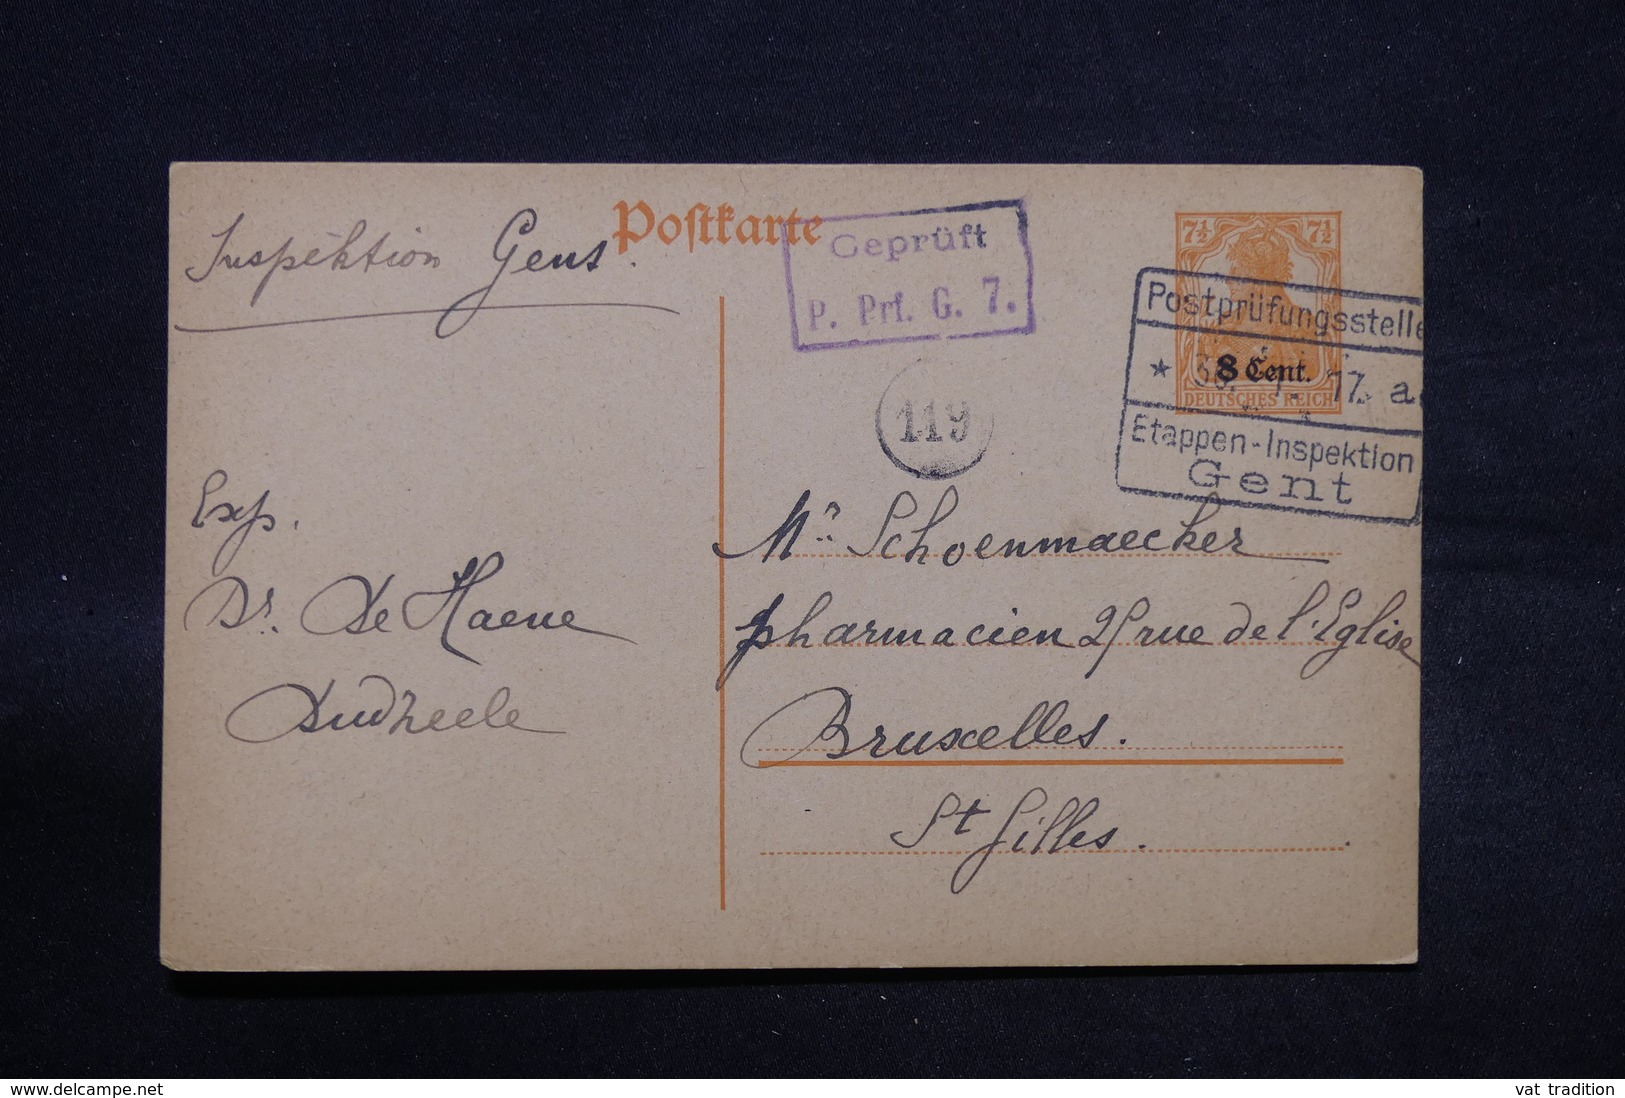 Postkarte
Inspektion Gent.
Geprüft
P. Prf. G. 7.
7½ 7½
8 Cent.
DEUTSCHES REICH
Postprüfungsstelle
17. a
Etappen-Inspektion
Gent
119
Exp.
Dr. De Haene
Mr. Schoenmaecker
pharmacien 25 rue de l'Eglise
Bruxelles.
St Gilles.
www.delcampe.net
vat_tradition